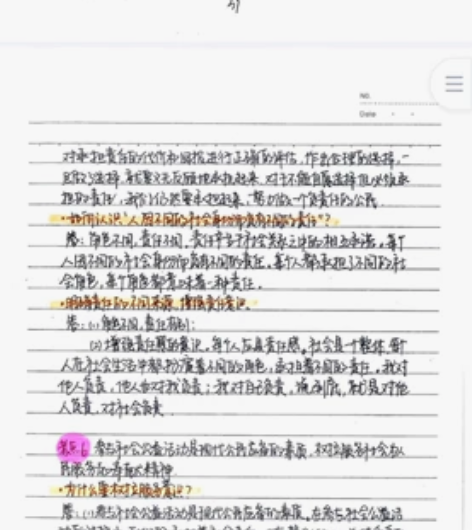 51
NO.
Date
对承担责任的代价和回报进行正确的评估，作出合理的选择，一
旦做了选择，就要义无反顾地承担起来，对于不能自愿选择但必须承
担的责任，我们仍然要承担起来，努力做一个负责任的公民。
·如何认识“人因不同的社会身份而负有不同的责任”？
答：角色不同，责任不同，责任产生于社会关系之中的相互承诺，每个
人因不同的社会身份而负有不同的责任，每个人都承担了不同的社
会角色，每个角色都意味着一种责任。
·明确责任的不同来源，增强责任意识。
答：(1)角色不同，责任有别；
(2)增强责任意识，每个人应具责任感。社会是一个整体，每个
人在社会生活中都扮演着不同的角色，承担着不同的责任，我对
他人负责，他人也对我负责；我对自己负责，说到底，就是对他
人负责，对社会负责
考点6 参与社会公益活动是现代公民应备的素质，积极服务社会和
民服务的奉献精神
·为什么要积极服务意识？
答：(1)参与社会公益活动是现代公民应备的素质。在参与社会公益活